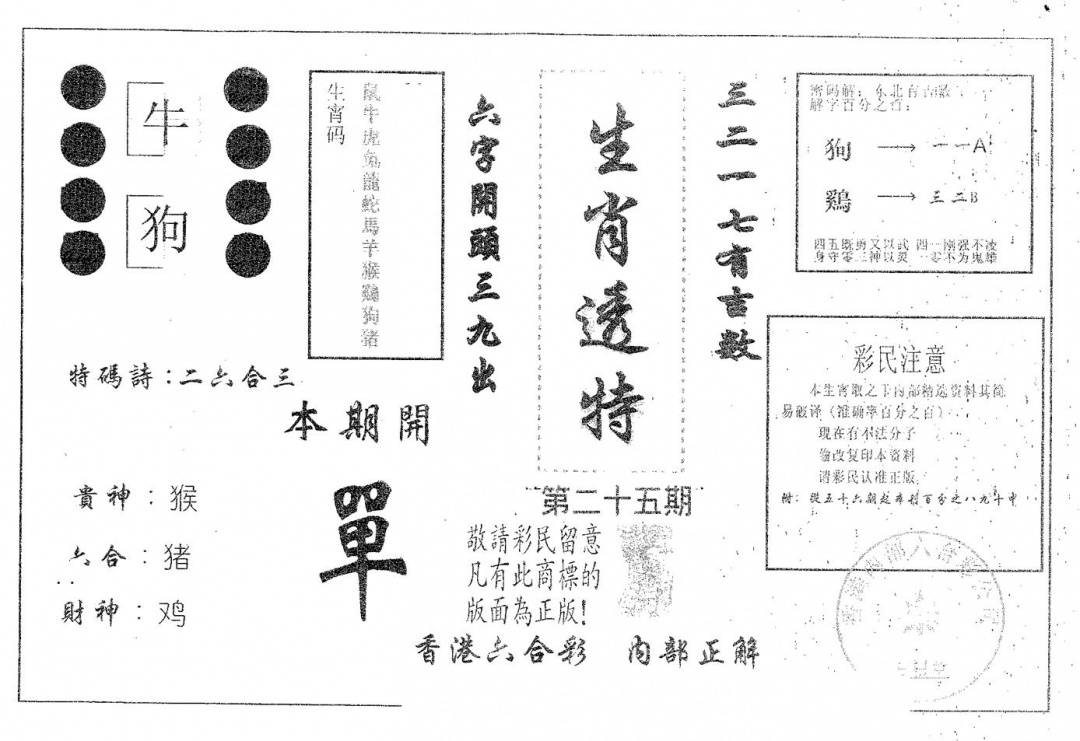 牛
狗
生宵码
鼠牛虎兔龍蛇馬羊猴鷄狗猪
六字開頭三九出
生肖透特
三二一七有吉数
密码解：东北有
解字百分之百：
狗 → 一一A
鷄 → 三二B
四五既勇又以武 四一刚强不凌
身守零三神以灵 一零不为鬼雄
特碼詩：二六合三
本期開
單
貴神：猴
六合：猪
財神：鸡
第二十五期
敬請彩民留意
凡有此商標的
版面為正版！
香港六合彩 内部正解
彩民注意
本生宵取之于内部精选资料其简
易破译（准确率百分之百）
现在有不法分子
偷改复印本资料
请彩民认准正版
附：從五十六期起 百分之八九十中